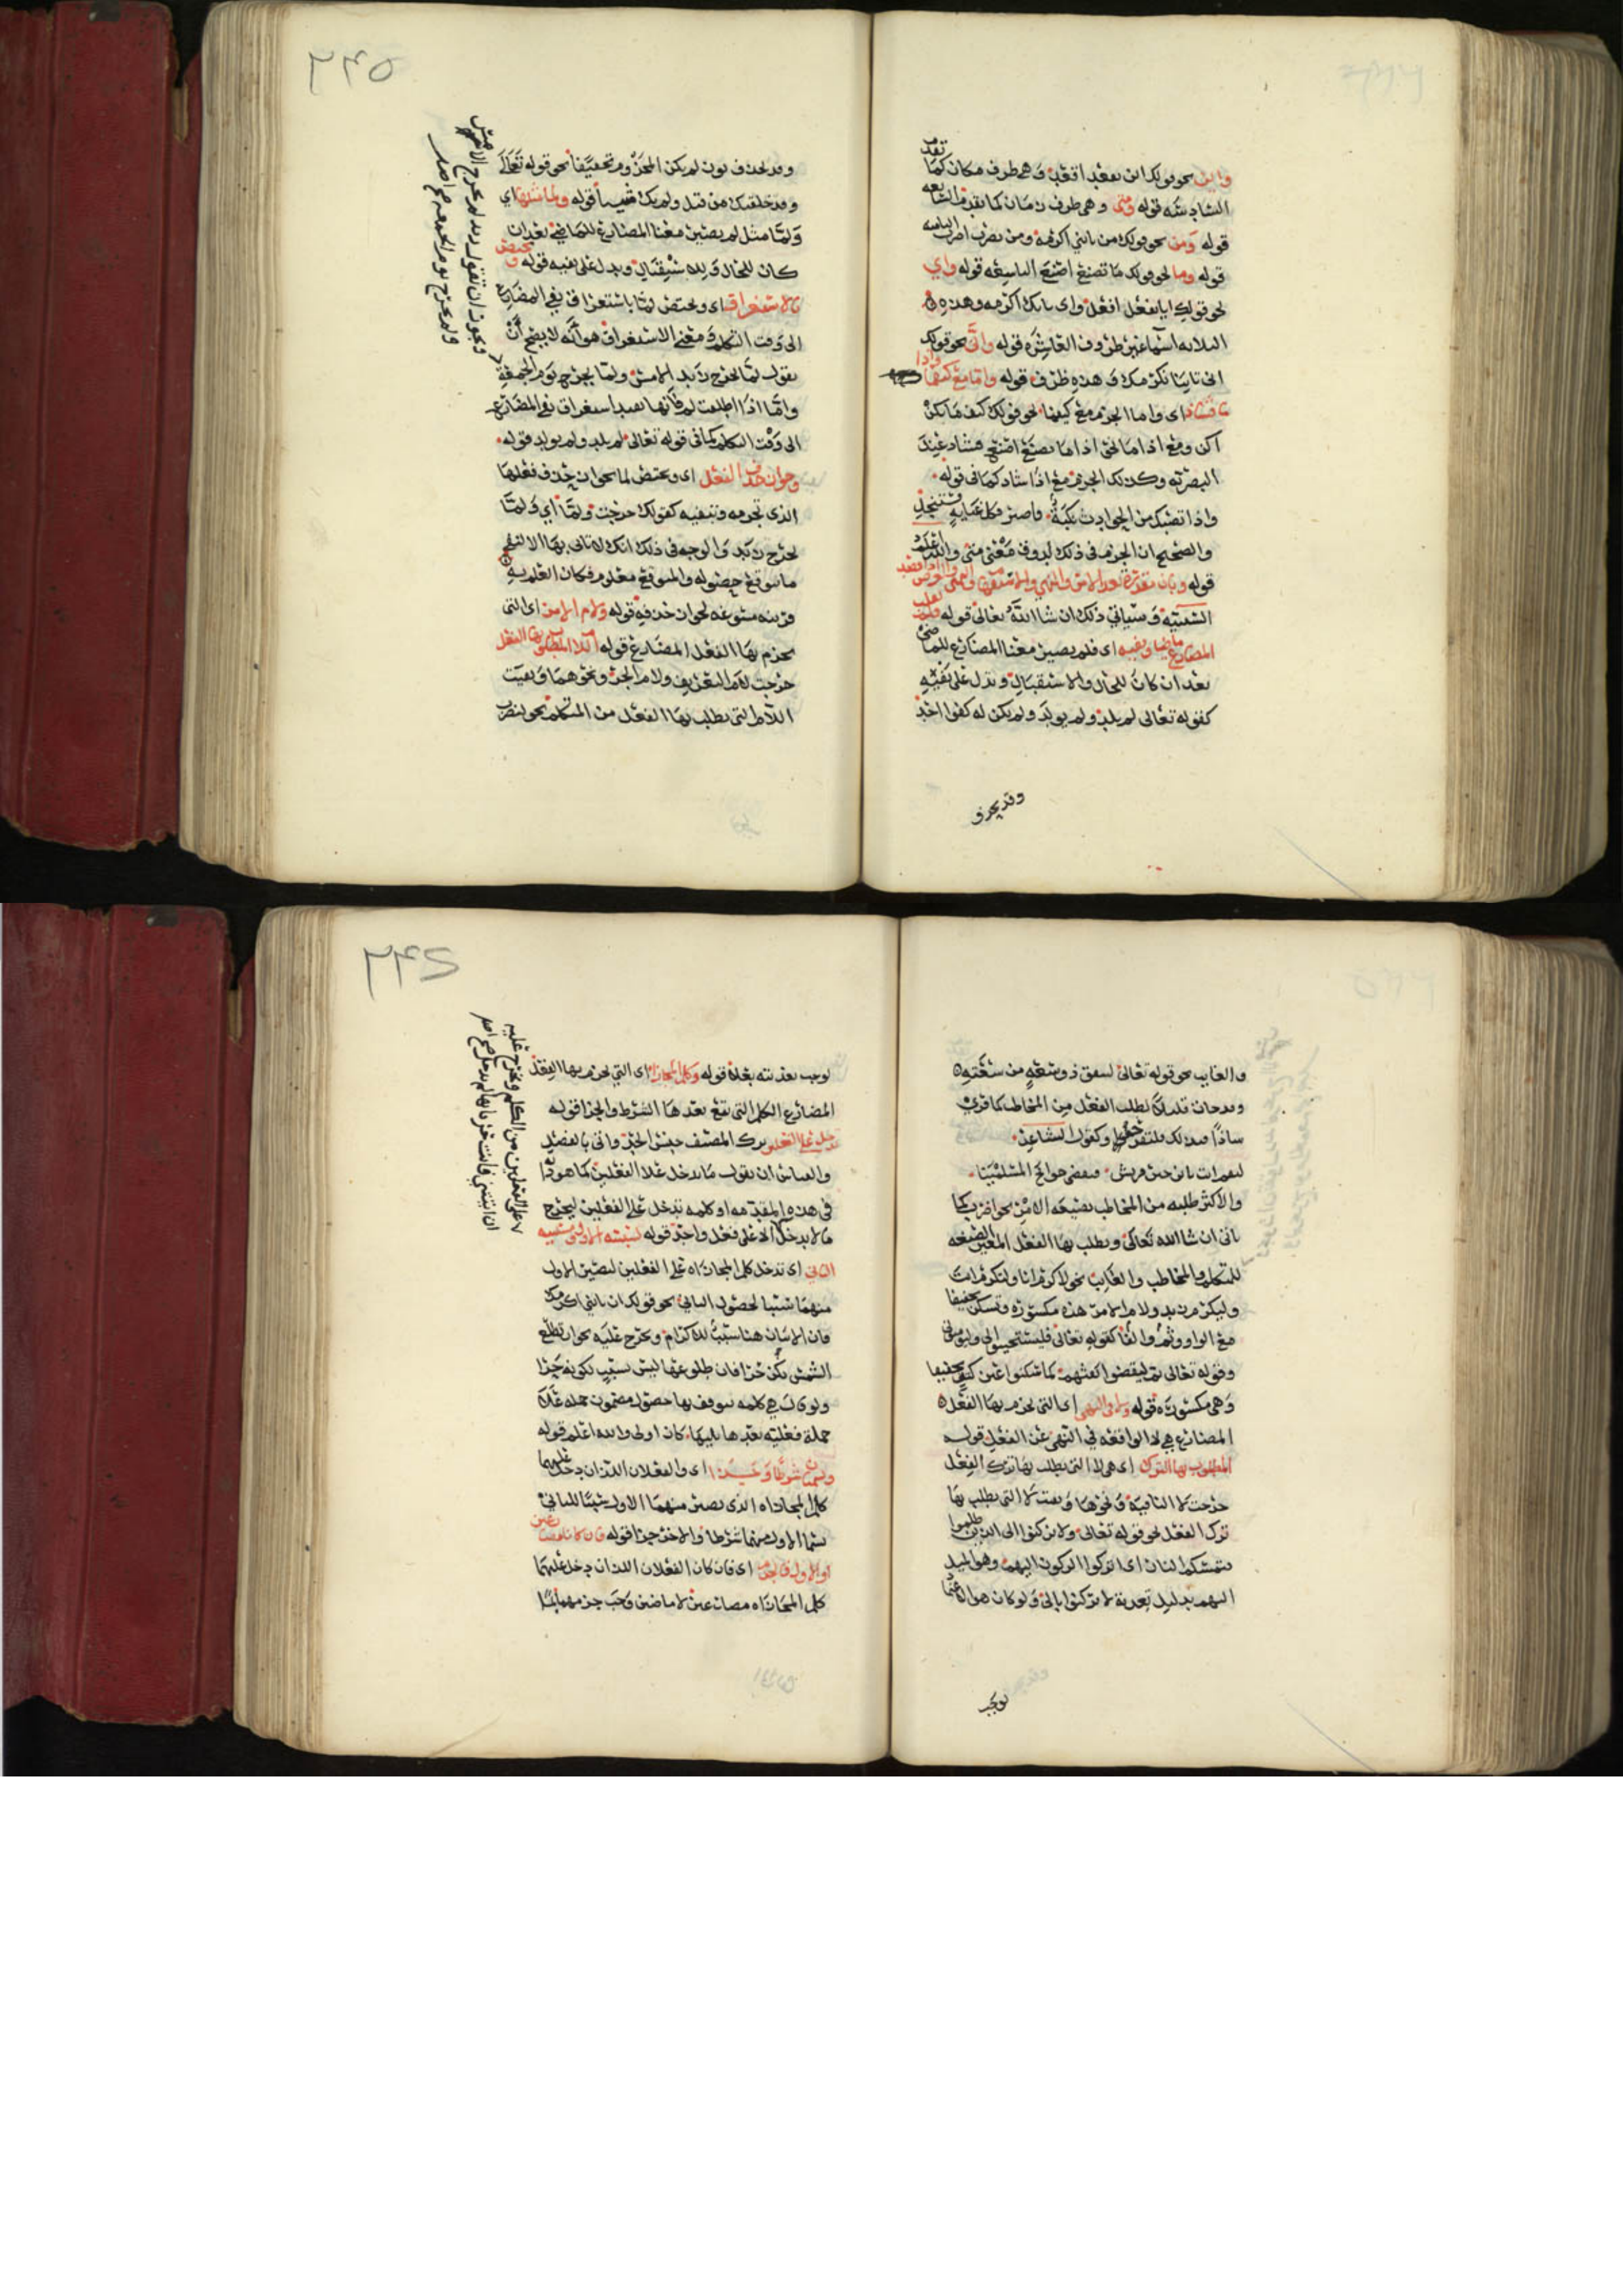 تقدم
واين نحو قولك اين تقعد اقعد وهي ظرف مكان كما
السادسة قوله ومتى وهي ظرف زمان كما تقدم السابعه
قوله ومن نحو قولك من يأتني اكرمه ومن تضرب اضرب الثامنه
قوله وما نحو قولك ما تصنع اصنع التاسعه قوله واي
نحو قولك ايا تفعل افعل واي يأتك اكرمه وهذه
الثلاثه اسما غير ظروف العاشره قوله وانى نحو قولك
انى تاتنا نكرمك وهذه ظرف قوله واما مع كيفما واذا
فشاذ اي واما الجزم مع كيفما نحو قولك كيف ما تكن
اكن ومع اذا ما نحو اذا ما تصنع اصنع فشاذ عند
البصريه وكذلك الجزم مع اذا شاذ كما في قوله
واذا تصبك من الحوادث نكبة فاصبر فكل غيابة ستنجلي
والصحيح ان الجزم في ذلك لوروده في معنى متى والله اعلم
قوله وبان مقدرة بعد الامر والنهي والاستفهام والتمني والعرض اذا قصد
السببية وسياتي ذلك ان شا الله تعالى قوله فلم لقلب
المضارع ماضيا ونفيه اي فلم يصير معنا المضارع للماضي
بعد ان كان للحال والاستقبال وتدل على نفيه
كقوله تعالى لم يلد ولم يولد ولم يكن له كفوا احد
وقد يحذف
٢٤٥
وقد تحذف نون لم يكن المجزوم تخفيفا نحو قوله تعالى
وقد خلقتك من قبل ولم يك شيئا قوله ولما مثلها اي
ولما مثل لم يصير معنا المضارع للماضي بعد ان
كان للحال والاستقبال ويدل على نفيه قوله وتختص
بالاستغراق اي وتختص لما باستغراق نفي المضارع
الى وقت التكلم ومعنى الاستغراق هو انه لا يصح ان
تقول لما يخرج زيد الامس ولما يخرج يوم الجمعة
واما اذا اطلقت لم فانها تفيد استغراق نفي المضارع
الى وقت التكلم كما في قوله تعالى لم يلد ولم يولد قوله
وجواز حذف الفعل اي وتختص لما بجواز حذف فعلها
الذي تجزمه وتنفيه كقولك خرجت ولما اي ولما
يخرج زيد والوجه في ذلك انك لا تاتي بها الا لنفي
ما يتوقع حصوله والمتوقع معلوم فكان العلم به
قرينه مسوغه لجواز حذفه قوله ولام الامر اي التي
يجزم بها الفعل المضارع قوله اللام المطلوب بها الفعل
خرجت لام التعريف ولام الجر ونحوهما وبقيت
اللام التي يطلب بها الفعل من المتكلم نحو لنضرب
ويجوز ان تقول زيد لم يخرج الامس
ولم يخرج يوم الجمعه صح اصل
والغايب نحو قوله تعالى لينفق ذو سعة من سعته
وقد جات قليلا لطلب الفعل من المخاطب كما قري
شاذا فبذلك فلتفرحوا وكقول الشاعر
لتقم انت يا ابن خير قريش فتقضي حوائج المسلمينا
والاكثر طلبه من المخاطب بصيغه الامر نحو اضرب كما
ياتي ان شا الله تعالى ويطلب بها الفعل المغير الصيغه
للمتكلم والمخاطب والغايب نحو لاكرم انا ولتكرم انت
وليكرم زيد ولام الامر هذه مكسوره وتسكن تخفيفا
مع الواو وثم والفا كقوله تعالى فليستجيبوا لي وليومنوا بي
وقوله تعالى ثم ليقضوا تفثهم كما سكنوا عين كتف تخفيفا
وهي مكسورة قوله ولا في النهي اي التي يجزم بها الفعل
المضارع هي لا الواقعه في النهي عن الفعل قوله
المطلوب بها الترك اي هي لا التي يطلب بها ترك الفعل
خرجت لا النافية ونحوها وبقيت لا التي يطلب بها
ترك الفعل نحو قوله تعالى ولا تركنوا الى الذين ظلموا
فتمسكم النار اي اتركوا الركون اليهم وهو الميل
اليهم بدليل تعديه لا تركنوا بالى ولو كان هو الاعتماد
يوجب
٢٤٦
لوجب تعديته بعلى قوله وكلم المجازاة اي التي يجزم بها الفعل
المضارع الكلم التي تقع بعدها الشرط والجزا قوله
تدخل على الفعلين ترك المصنف جنس الحد واتى بالفصل
والقياس ان يقول ما يدخل على الفعلين كما هو دابه
في هذه المقدمه او كلمه تدخل على الفعلين ليخرج
ما لا يدخل الا على فعل واحد قوله لسببية الاول ومسببية
الثاني اي تدخل كلم المجازاه على الفعلين لتصير الاول
منهما سببا لحصول الثاني نحو قولك ان تاتني اكرمك
فان الاتيان هنا سبب للاكرام ويخرج عليه نحو ان تطلع
الشمس يكن حرا فان طلوعها ليس بسبب لكونه حرا
ولو قال هي كلمه يتوقف بها حصول مضمون جمله على
جملة فعليه بعدها يليها كان اولى والله اعلم قوله
ويسميان شرطا وجزا اي والفعلان اللذان دخل عليهما
كلم المجازاه الذي يصير منهما الاول سببا للثاني
يسما الاول منهما شرطا والاخر جزا قوله فان كانا مضارعين
او الاول فالجزم اي فان كان الفعلان اللذان دخل عليهما
كلم المجازاه مضارعين لا ماضيين وجب جزمهما
على الفعلين من الكلم ويخرج عليه
ان اتيتني فانت حر بانها لم تدخل صح اصل